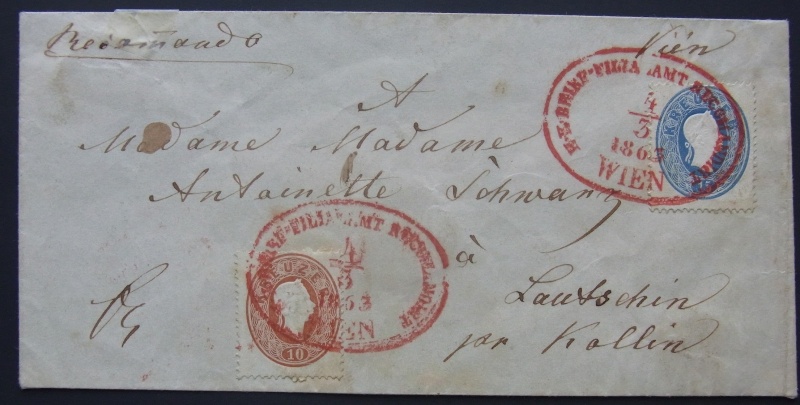 Recomando
Vién
A
Madame Madame
Antoinette Schwarz
à
Lautschin
pr Kollin
K.K. BRIEF-FILIAL AMT
4/5
1863
WIEN
KREU
K.K. BRIEF-FILIAL AMT
4/5
1863
WIEN
KREUZER
10